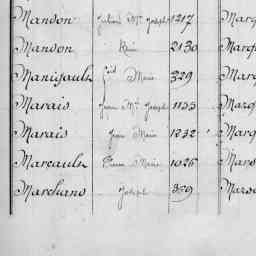 Mandon Julien Me. Joseph 1217 Marq
Mandon René 2130 Marq
Manigault Marie 329 Marq
Marais Jean Me. Joseph 1133 Marq
Marais Jean Marie 1232 Marq
Marcault Pierre Marie 1026 Mars
Marchand Joseph 359 Marso